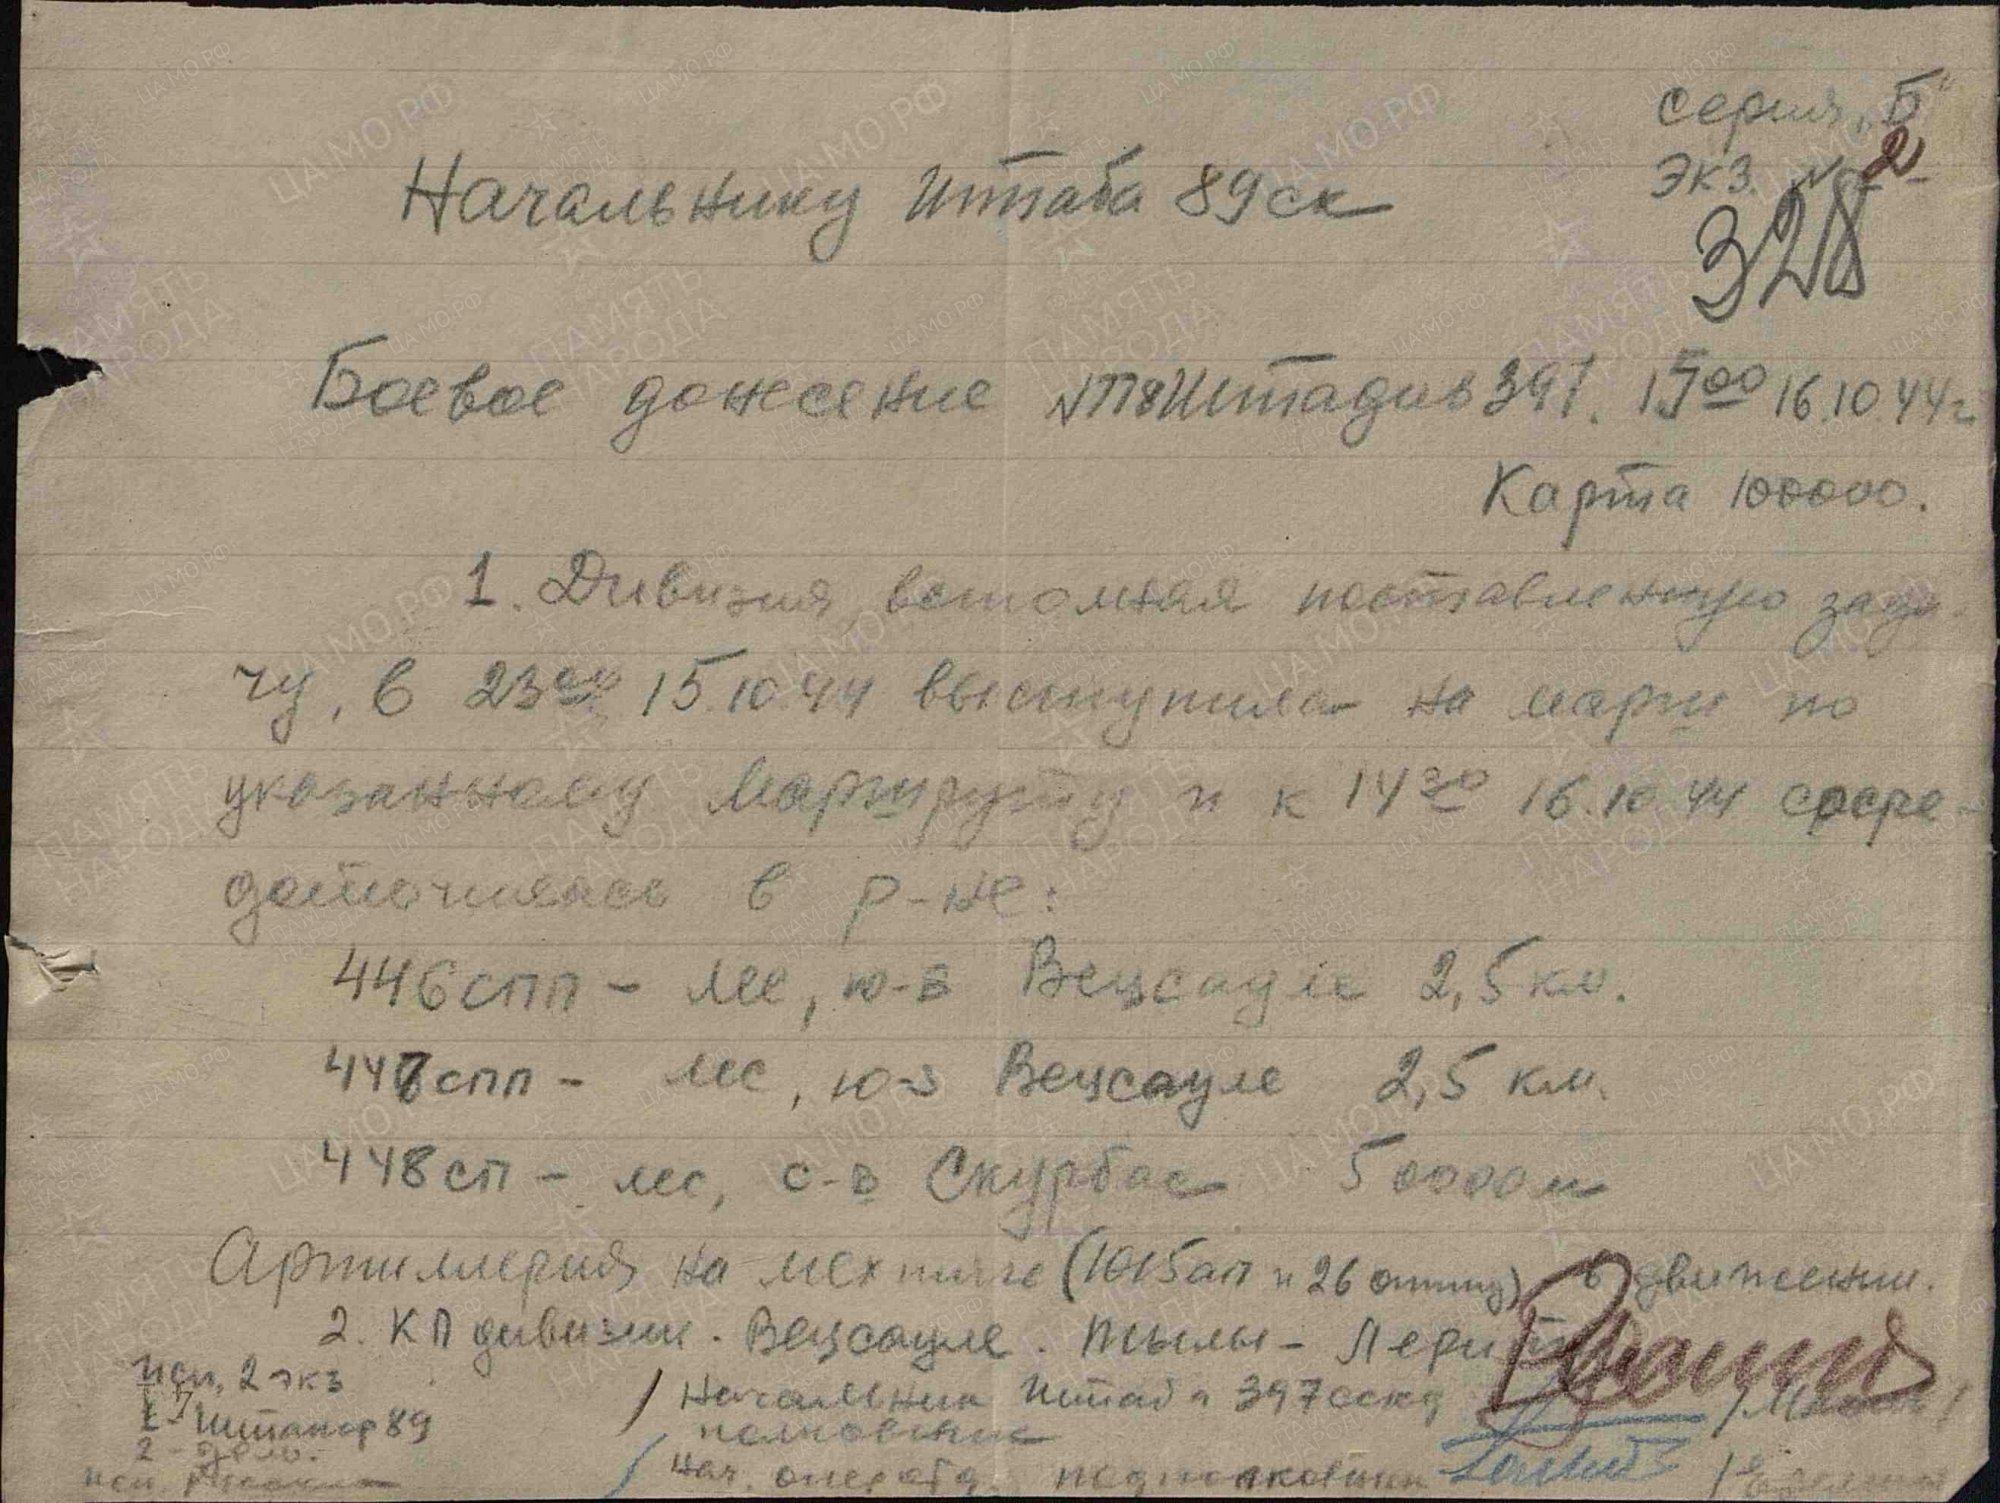 серия „Б"
экз. № 2
328
Начальнику Штаба 89ск
Боевое донесение №118 Штадив 397. 15⁰⁰ 16.10.44г
Карта 100000.
1. Дивизия, выполняя поставленную зада-
чу, в 23⁰⁰ 15.10.44 выступила на марш по
указанному маршруту и к 14³⁰ 16.10.44 сосре-
доточилась в р-не:
446спп - лес, ю-в Вецсауле 2,5 км.
447спп - лес, ю-з Вецсауле 2,5 км.
448сп - лес, с-в Скурбас 50000м
Артиллерия на мехтяге (1015ап и 26 оптид) в движении.
2. КП дивизии - Вецсауле. Тылы -
исп. 2 экз
1 - Штакор 89
2 - дело.
исп.
Начальник Штаба 397сскд
полковник
Нач. оперотд. подполковник
ЦАМО.РФ
ПАМЯТЬ НАРОДА